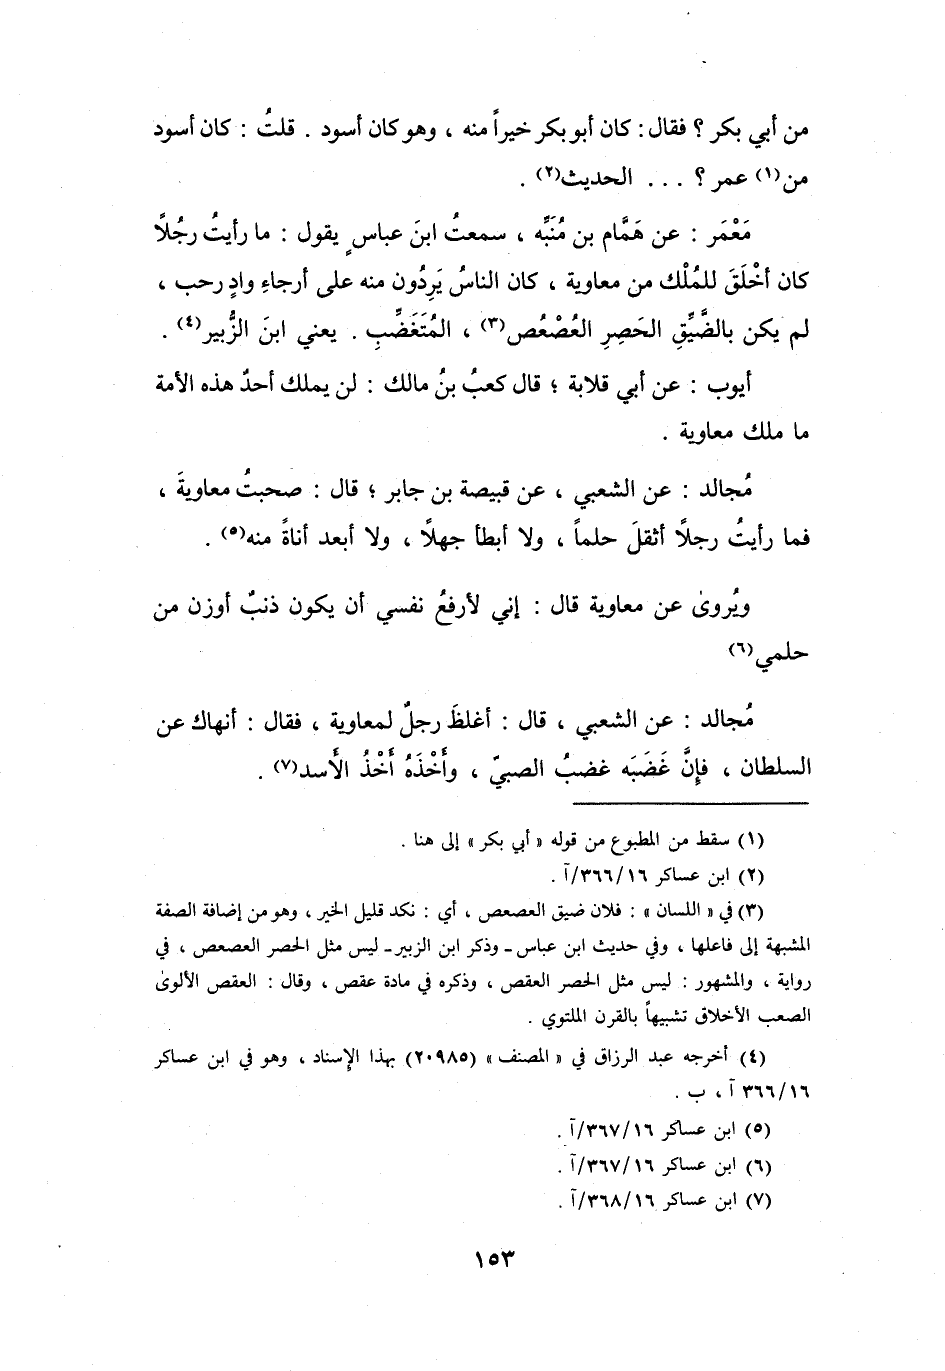 من أبي بكر ؟ فقال : كان أبو بكر خيراً منه ، وهو كان أسود . قلتُ : كان أسود
من(١) عمر ؟ . . . الحديث(٢) .
مَعْمَر : عن هَمَّام بن مُنَبِّه ، سمعتُ ابنَ عباسٍ يقول : ما رأيتُ رجُلًا
كان أخْلَقَ للمُلْك من معاوية ، كان الناسُ يَرِدُون منه على أرجاءِ وادٍ رحب ،
لم يكن بالضَّيِّقِ الحَصِرِ العُصْعُص(٣) ، المُتَغَضِّبِ . يعني ابنَ الزُّبير(٤) .
أيوب : عن أبي قلابة ؛ قال كعبُ بنُ مالك : لن يملك أحدٌ هذه الأمة
ما ملك معاوية .
مُجالد : عن الشعبي ، عن قبيصة بن جابر ؛ قال : صحبتُ معاويةَ ،
فما رأيتُ رجلًا أثقلَ حلماً ، ولا أبطأ جهلًا ، ولا أبعد أناةً منه(٥) .
ويُروىٰ عن معاوية قال : إني لأرفعُ نفسي أن يكون ذنبٌ أوزن من
حلمي(٦)
مُجالد : عن الشعبي ، قال : أغلظَ رجلٌ لمعاوية ، فقال : أنهاك عن
السلطان ، فإِنَّ غَضَبَه غضبُ الصبيّ ، وأَخْذَهُ أَخْذُ الأَسد(٧) .
(١) سقط من المطبوع من قوله « أبي بكر » إلى هنا .
(٢) ابن عساكر ٣٦٦/١٦/آ .
(٣) في « اللسان » : فلان ضيق العصعص ، أي : نكد قليل الخير ، وهو من إضافة الصفة
المشبهة إلى فاعلها ، وفي حديث ابن عباس ـ وذكر ابن الزبير ـ ليس مثل الحصر العصعص ، في
رواية ، والمشهور : ليس مثل الحصر العقص ، وذكره في مادة عقص ، وقال : العقص الألوىٰ
الصعب الأخلاق تشبيهاً بالقرن الملتوي .
(٤) أخرجه عبد الرزاق في « المصنف » (٢٠٩٨٥) بهذا الإسناد ، وهو في ابن عساكر
٣٦٦/١٦ آ ، ب .
(٥) ابن عساكر ٣٦٧/١٦/آ .
(٦) ابن عساكر ٣٦٧/١٦/آ .
(٧) ابن عساكر ٣٦٨/١٦/آ .
١٥٣